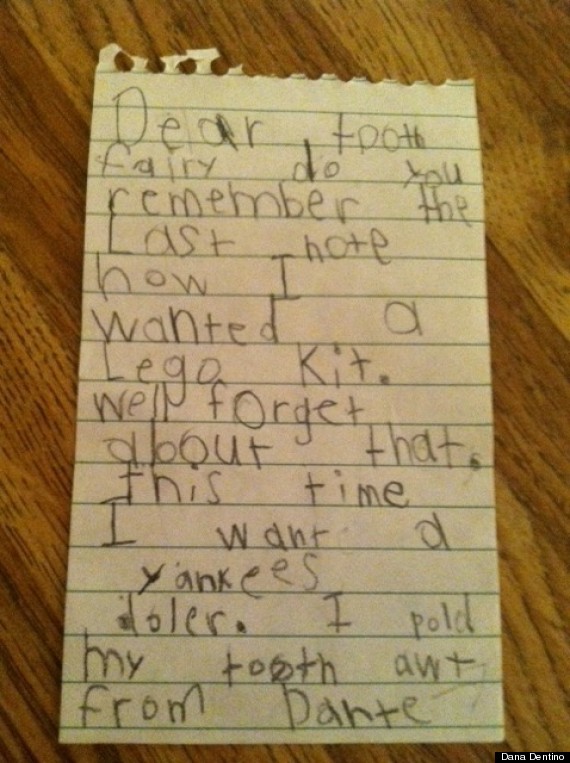 Dear tooth
fairy do you
remember the
Last note
how I
wanted a
Lego Kit.
well forget
about that.
this time
I want a
yankees
doler. I pold
my tooth awt
from Dante
Dana Dentino